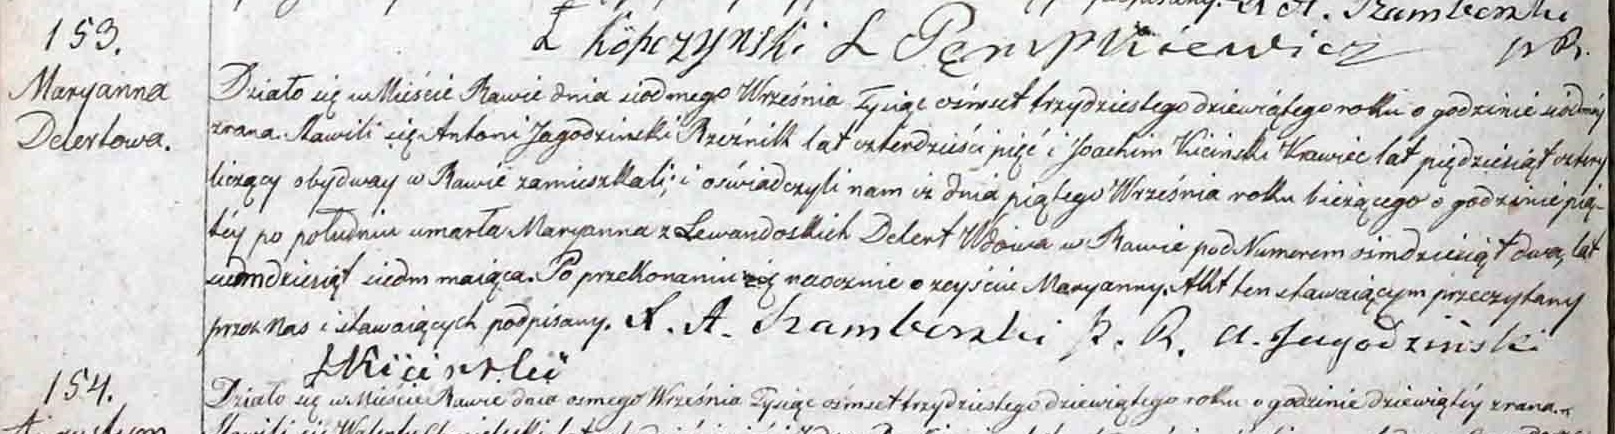 podpisany. X A. Szamborski
Ł Kopczynski Ł Pęmpkiewicz p R.
153.
Maryanna
Delertowa.
Działo się w Mieście Rawie dnia siodmego Września Tysiąc ośmset trzydziestego dziewiątego roku o godzinie siódméy
zrana. Stawili się Antoni Jagodzinski Rzeźnik lat czterdzieści pięć i Joachim Kicinski Krawiec lat pięędziesiąt cztery
liczący obydway w Rawie zamieszkali; i oświadczyli nam iż dnia piątego Września roku bieżącego o godzinie pią-
téy po południu umarła Maryanna z Lewandoskich Delert Wdowa w Rawie pod Numerem ośmdziesiąt dwa, lat
siedmdziesiąt siedm maiąca. Po przekonaniu się naocznie o zeyściu Maryanny. Akt ten stawaiącym przeczytany
przez Nas i stawaiących podpisany. X. A. Szamborski P. R. A. Jagodziński
Kicinski
154.
Działo się w Mieście Rawie dnia osmego Września Tysiąc ośmset trzydziestego dziewiątego roku o godzinie dziewiątéy zrana.
Stawili się Walenty